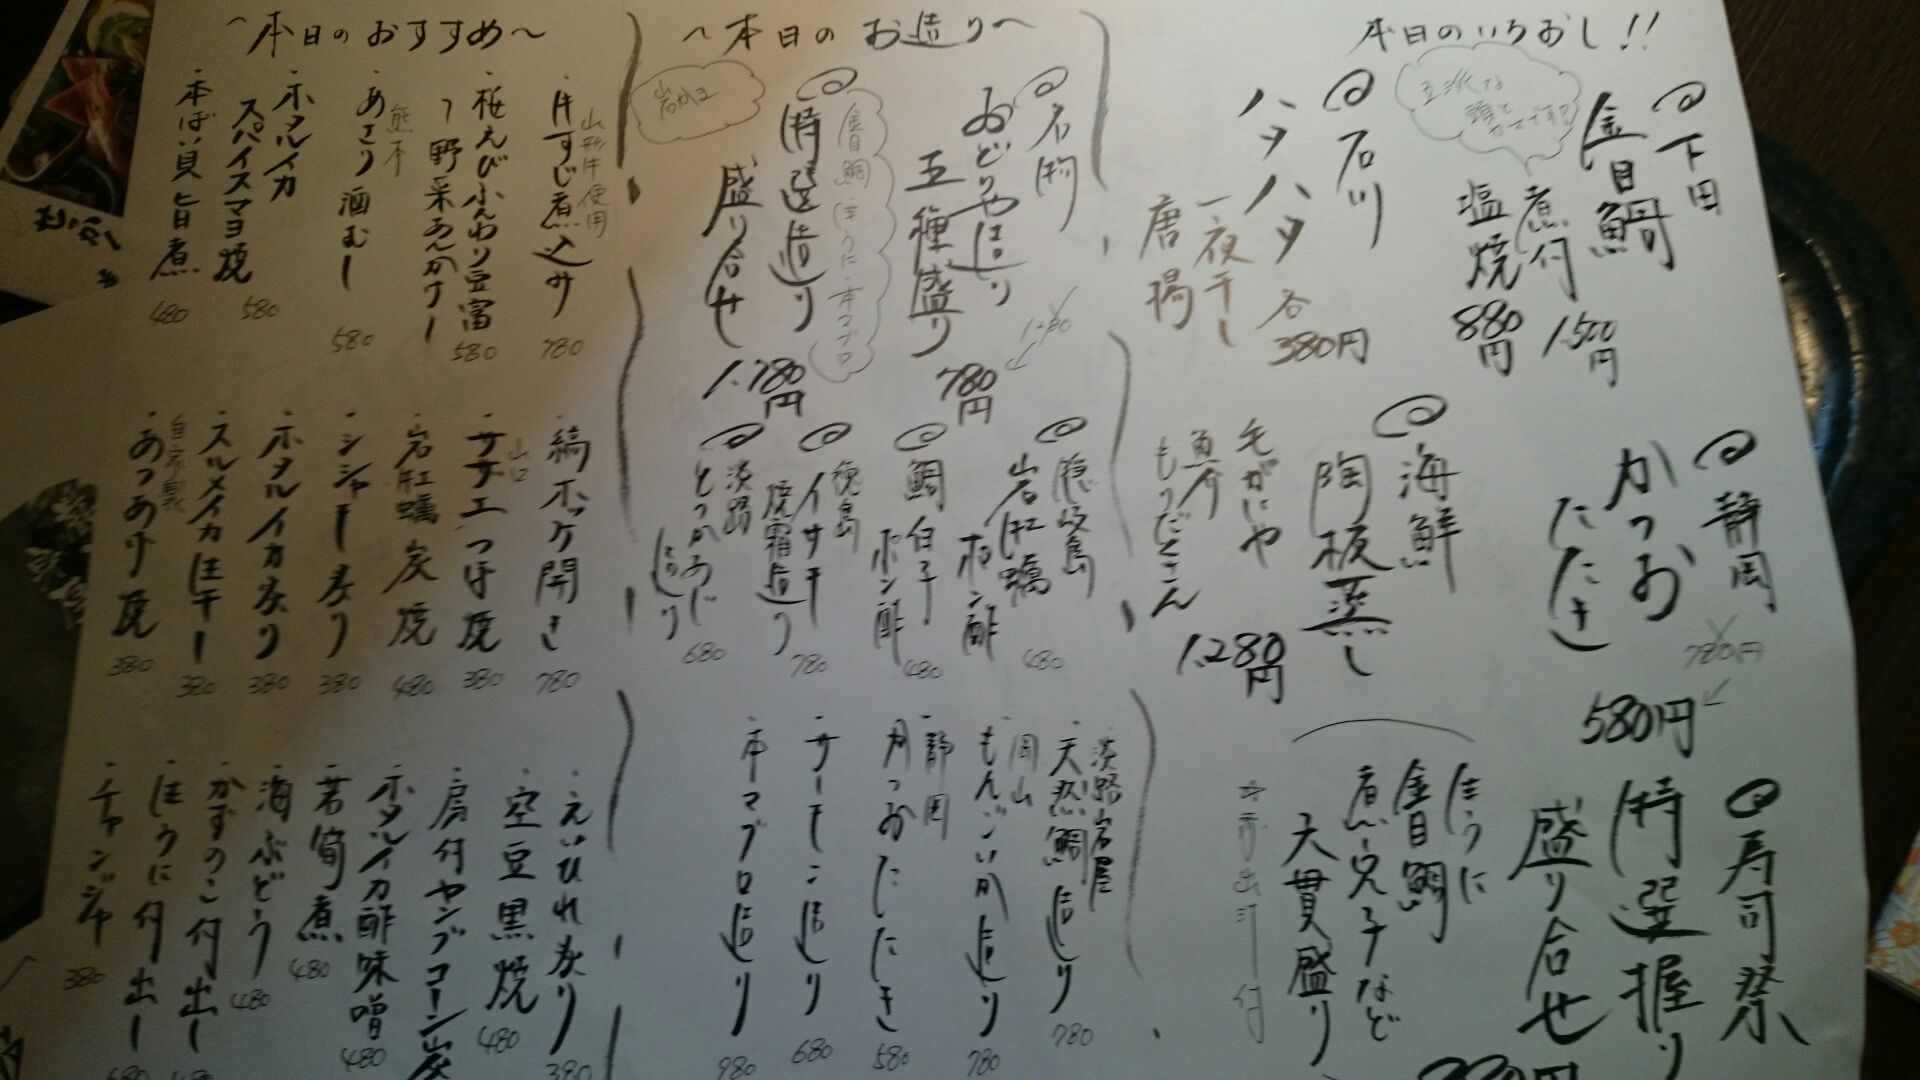 本日のいちおし!!
下田
金目鯛
煮付
1,500円
塩焼
880円
立派な
石川
ハタハタ
各380円
一夜干し
唐揚
静岡
かつお
たたき
780円
580円
海鮮
陶板蒸し
毛がにや
魚介
もりだくさん
1,280円
寿司祭
特選握り
盛り合せ
生うに
金目鯛
煮穴子など
大貫盛り
赤出汁付
~本日のお造り~
名物
おどりや造り
五種盛り
780円
特選造り
盛り合せ
1,780円
金目鯛・生うに・本マグロ
隠岐島
岩牡蠣
ポン酢
480
鯛白子
ポン酢
480
徳島
イサキ
焼霜造り
780
淡路
とっかあじ
造り
680
淡路岩屋
天然鯛造り
780
岡山
もんごいか造り
780
静岡
かつおたたき
580
サーモン造り
680
本マグロ造り
980
~本日のおすすめ~
山形牛使用
牛すじ煮込み
780
桜えびふんわり豆富
野菜あんかけ
580
熊本
あさり酒むし
580
ホタルイカ
スパイスマヨ焼
580
本ばい貝旨煮
480
縞ホッケ開き
780
山口
サザエつぼ焼
380
岩牡蠣炭焼
480
シシャモ炙り
380
ホタルイカ炙り
380
スルメイカ生干し
380
自家製
あつあげ焼
380
えいひれ炙り
380
空豆黒焼
480
房付ヤングコーン炭
ホタルイカ酢味噌
480
若筍煮
480
海ぶどう
480
かずのこ付出し
生うに付出し
チャンジャ
380